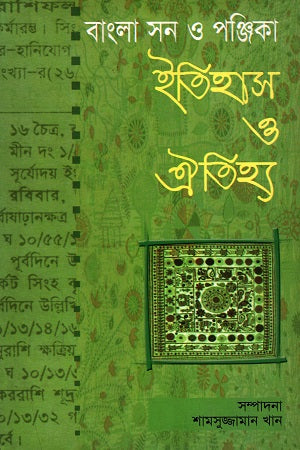 বাংলা সন ও পঞ্জিকা
ইতিহাস
ও
ঐতিহ্য
সম্পাদনা
শামসুজ্জামান খান
রাশিফল
কর্মারম্ভ। সিং
র-হানিযোগ
ংখ্যা-র(২৬/
১৬ চৈত্র,
মীন দং ১/
সূর্যোদয় ইং
রবিবার,
র্বাষাঢ়ানক্ষত্র
ঘ ১০/৫৫/
পূর্বদিনে উ
র্কট সিংহ ব
বদিনে উল্লিখি
৩/১৩/১৪/১
রাশি ক্ষত্রিয়
ঘ ১০/১৩/৫
কররাশি শূদ্র
০/১৩/৩২ গ
র্বে।